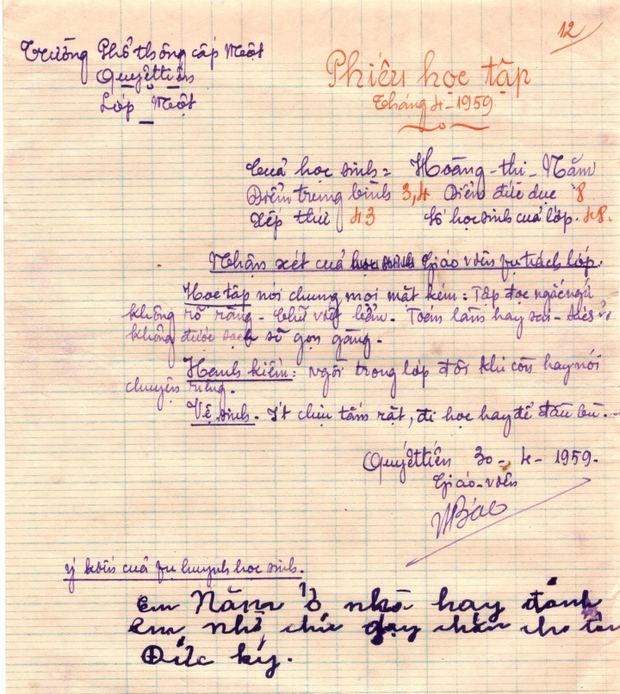 12
Trường Phổ thông cấp Một
Quyết tiến
Lớp Một
Phiếu học tập
Tháng 4-1959
Cuả học sinh = Hoàng-thị-Nắm
Điểm trung bình 3,4 Điểm đức dục 8
Xếp thứ 43 Số học sinh cuả lớp. 48.
Nhận xét cuả học sinh Giáo viên fụ trách lớp.
Học tập nói chung mọi mặt kém: Tập đọc ngắc ngứ
không rõ ràng - Chữ viết bẩn. Toán làm hay sai -
không được sạch sẽ gọn gàng.
Hạnh kiểm: Ngồi trong lớp đôi khi còn hay nói
chuyện riêng.
Vệ sinh - Ít chịu tắm rặt, đi học hay để đầu bù.
Quyết tiến 30-4-1959.
Giáo-viên
ý kiến cuả fụ huynh học sinh.
Em Nắm ở nhà hay đánh
em, nhờ chú dạy
Đức ký.